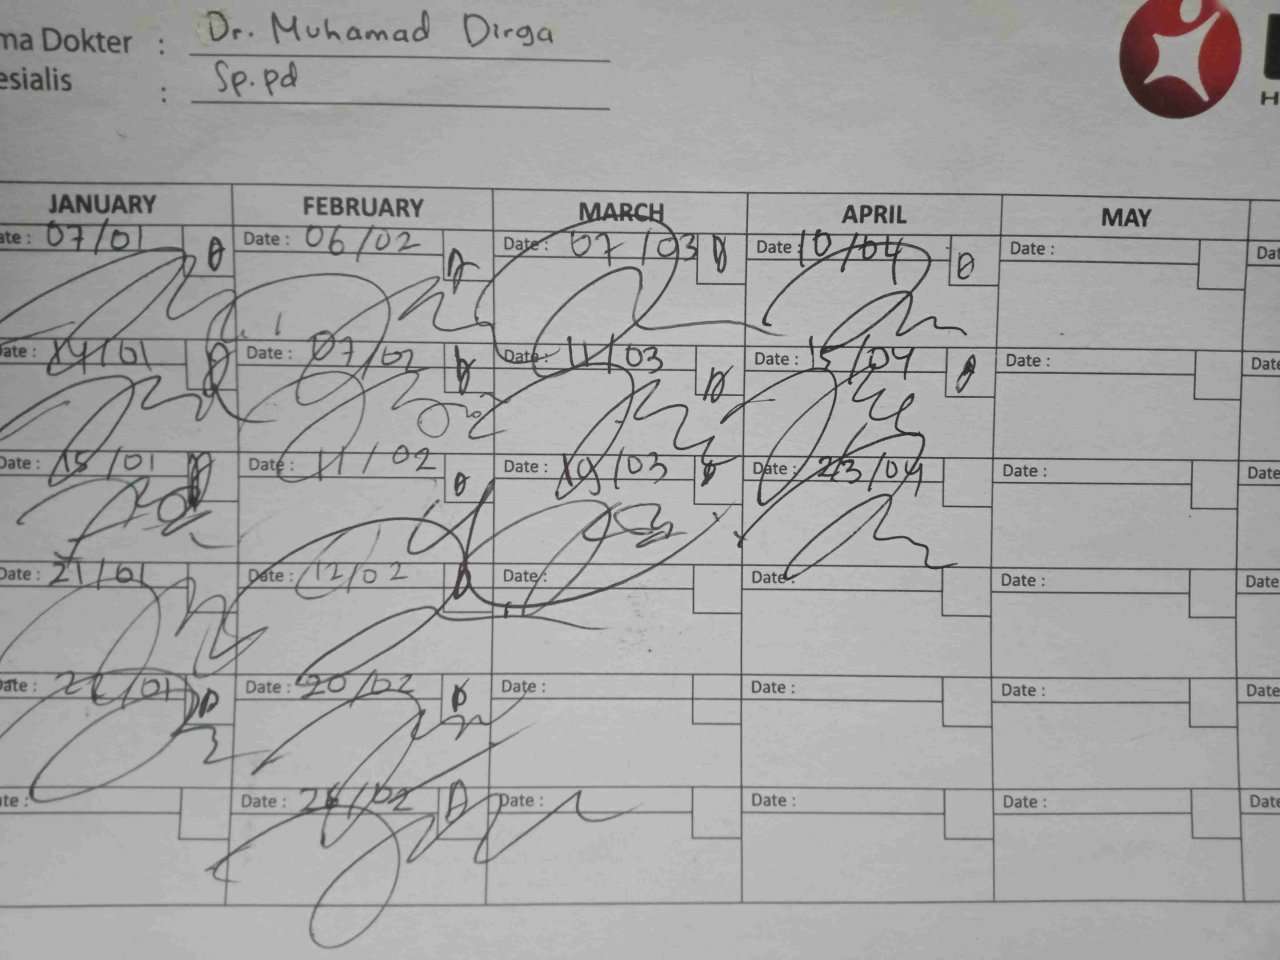 ma Dokter : Dr. Muhamad Dirga
esialis : Sp.pd
H
JANUARY FEBRUARY MARCH APRIL MAY
ate : 07/01 Date : 06/02 Date : 07/03 Date : 10/04 Date : Dat
ate : 14/01 Date : 07/02 Date : 11/03 Date : 15/04 Date : Date
Date : 15/01 Date : 11/02 Date : 19/03 Date : 23/04 Date : Date
Date : 21/01 Date : 12/02 Date : Date : Date : Date
ate : Date : 20/02 Date : Date : Date : Date
te : Date : Date : Date : Date : Date